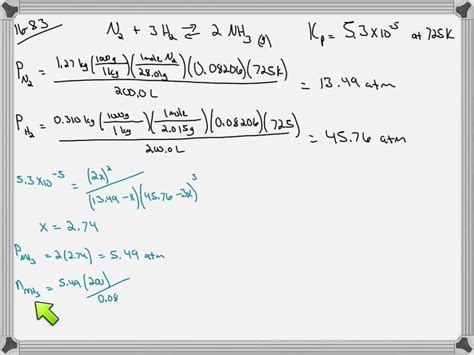 16-83 N₂ + 3H₂ ⇌ 2 NH₃(g) Kp = 5.3×10⁻⁵ at 725K
P_N₂ = 1.27 kg (1000g/1kg)(1mole N₂/28.01g)(0.08206)(725K) / 200.0L = 13.49 atm
P_H₂ = 0.310 kg (1000g/1kg)(1mole/2.015g)(0.08206)(725) / 200.0L = 45.76 atm
5.3×10⁻⁵ = (2x)² / (13.49-x)(45.76-3x)³
x = 2.74
P_NH₃ = 2(2.74) = 5.49 atm
n_NH₃ = 5.49(200) / 0.08